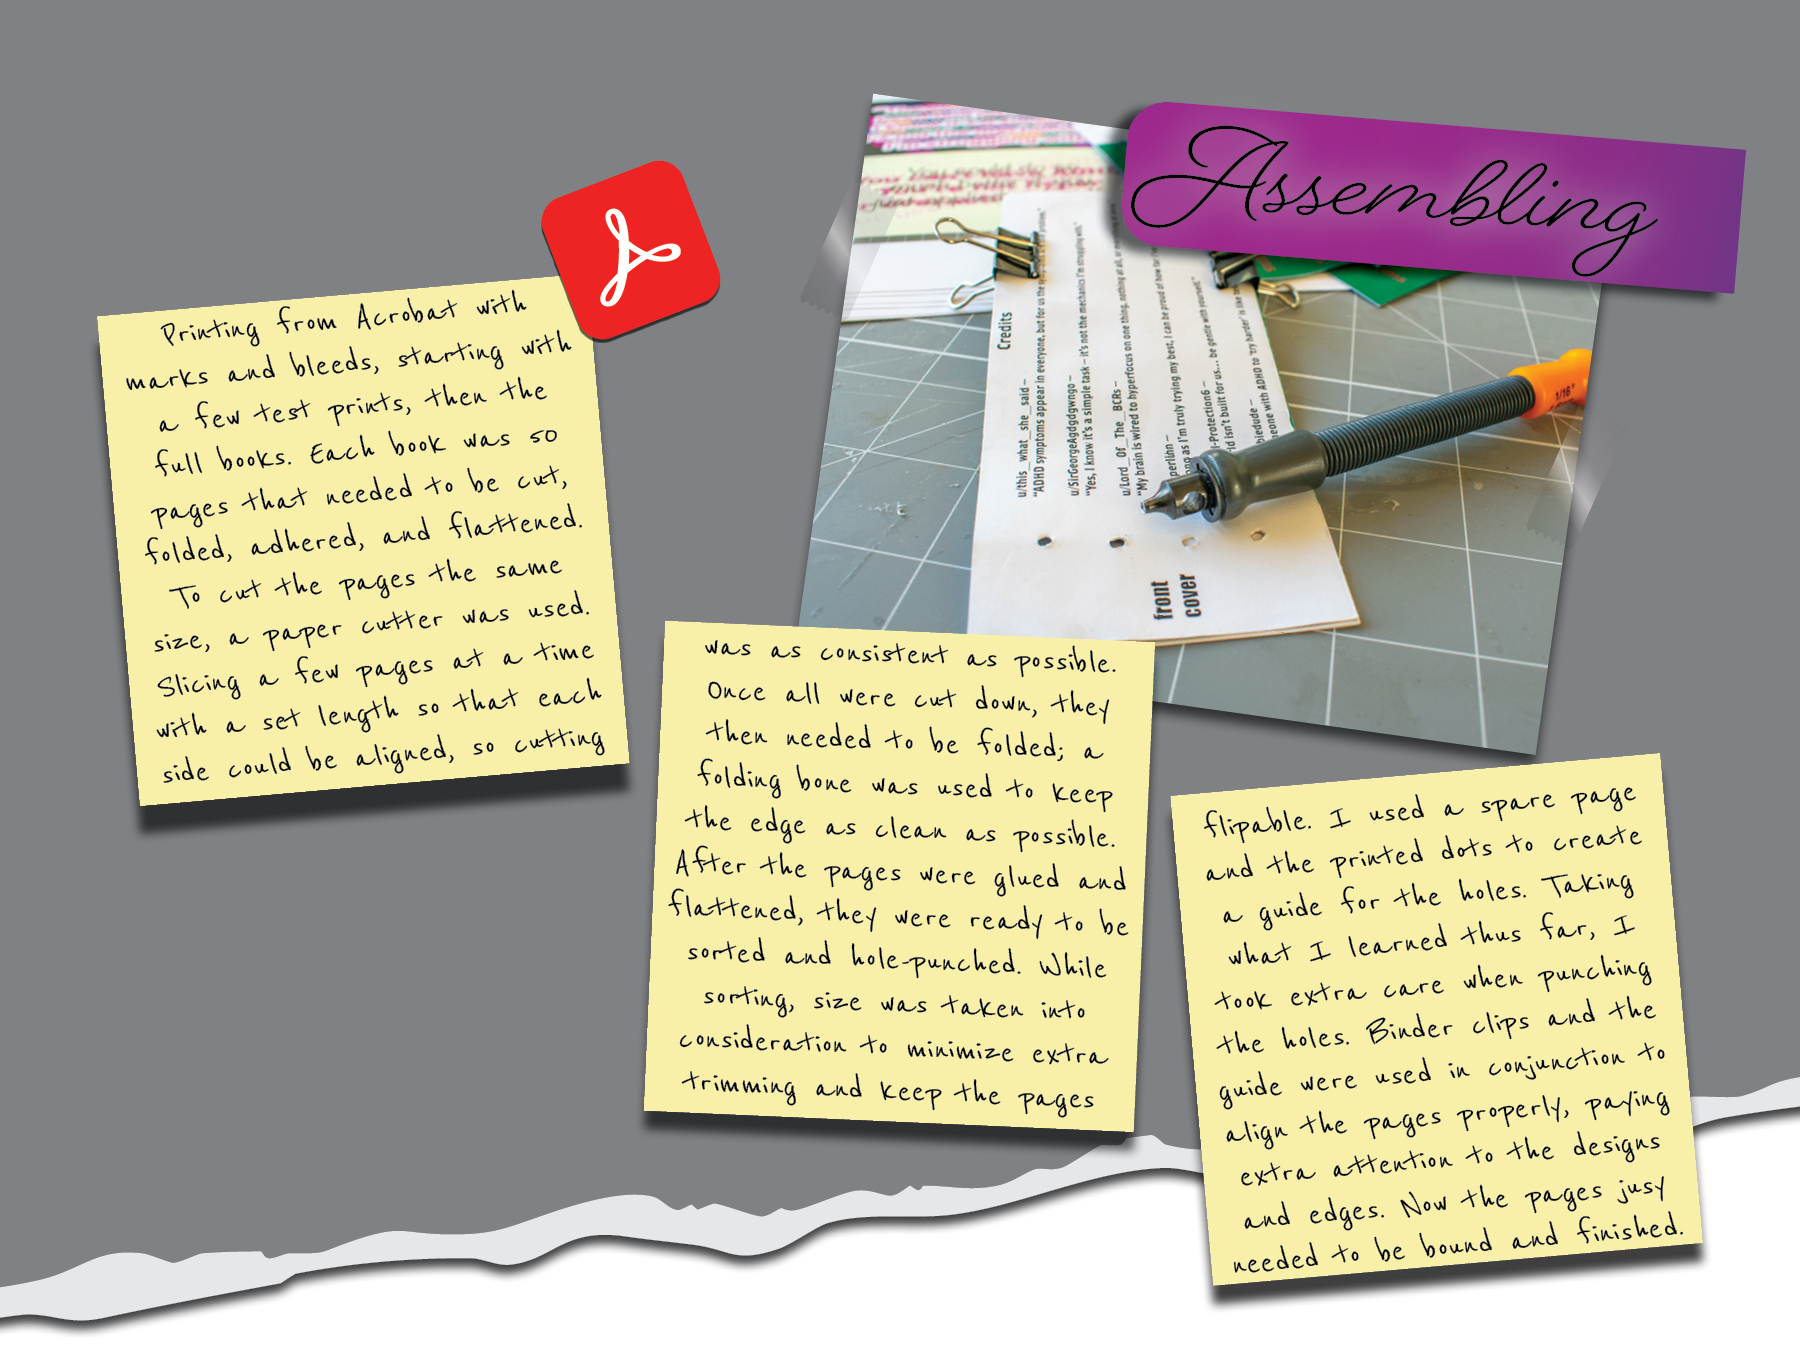 Assembling
Printing from Acrobat with
marks and bleeds, starting with
a few test prints, then the
full books. Each book was 50
pages that needed to be cut,
folded, adhered, and flattened.
To cut the pages the same
size, a paper cutter was used.
Slicing a few pages at a time
with a set length so that each
side could be aligned, so cutting
was as consistent as possible.
Once all were cut down, they
then needed to be folded; a
folding bone was used to keep
the edge as clean as possible.
After the pages were glued and
flattened, they were ready to be
sorted and hole-punched. While
sorting, size was taken into
consideration to minimize extra
trimming and keep the pages
flipable. I used a spare page
and the printed dots to create
a guide for the holes. Taking
what I learned thus far, I
took extra care when punching
the holes. Binder clips and the
guide were used in conjunction to
align the pages properly, paying
extra attention to the designs
and edges. Now the pages jusy
needed to be bound and finished.
Credits
u/this_what_she_said –
"ADHD symptoms appear in everyone, but for us the
u/SirGeorgeAgdgdgwngo –
"Yes, I know it's a simple task – it's not the mechanics I'm struggling with."
u/Lord_Of_The_BCRs –
"My brain is wired to hyperfocus on one thing, nothing at all, or
as I'm truly trying my best, I can be proud of how far
l-Protection6 –
isn't built for us... be gentle with yourself."
with ADHD to 'try harder' is like
front
cover
1/16"